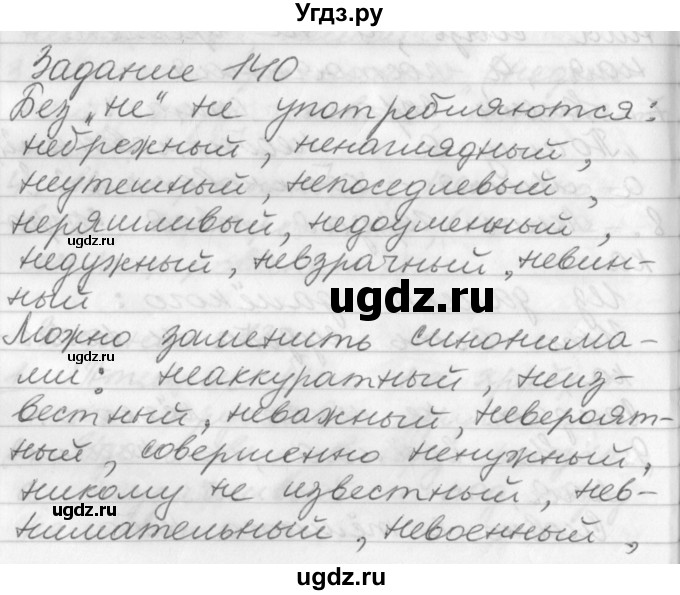 Угдз.ру
Задание 140
Без „не" не употребляются:
небрежный, ненаглядный,
неутешный, непоседлевый,
неряшливый, недоуменный,
ugdz.ru
недужный, невзрачный, невин-
ный
ugdz.ru
Можно заменить синонима-
ugdz.ru
ми: неаккуратный, неиз-
вестный, неважный, невероят-
ный, совершенно ненужный,
никому не известный, нев-
ugdz.ru
нимательный, невоенный,
ugdz.ru